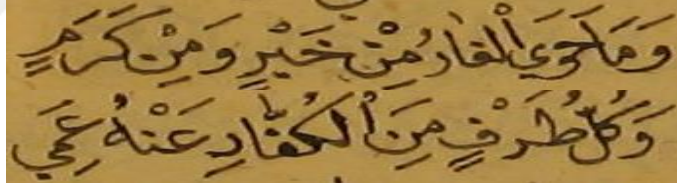 وَمَا حَوَي الْغَارُ مِنْ خَيْرٍ وَمِنْ كَرَمٍ
وَكُلُّ طَرْفٍ مِنَ الْكُفَّارِ عَنْهُ عَمِي